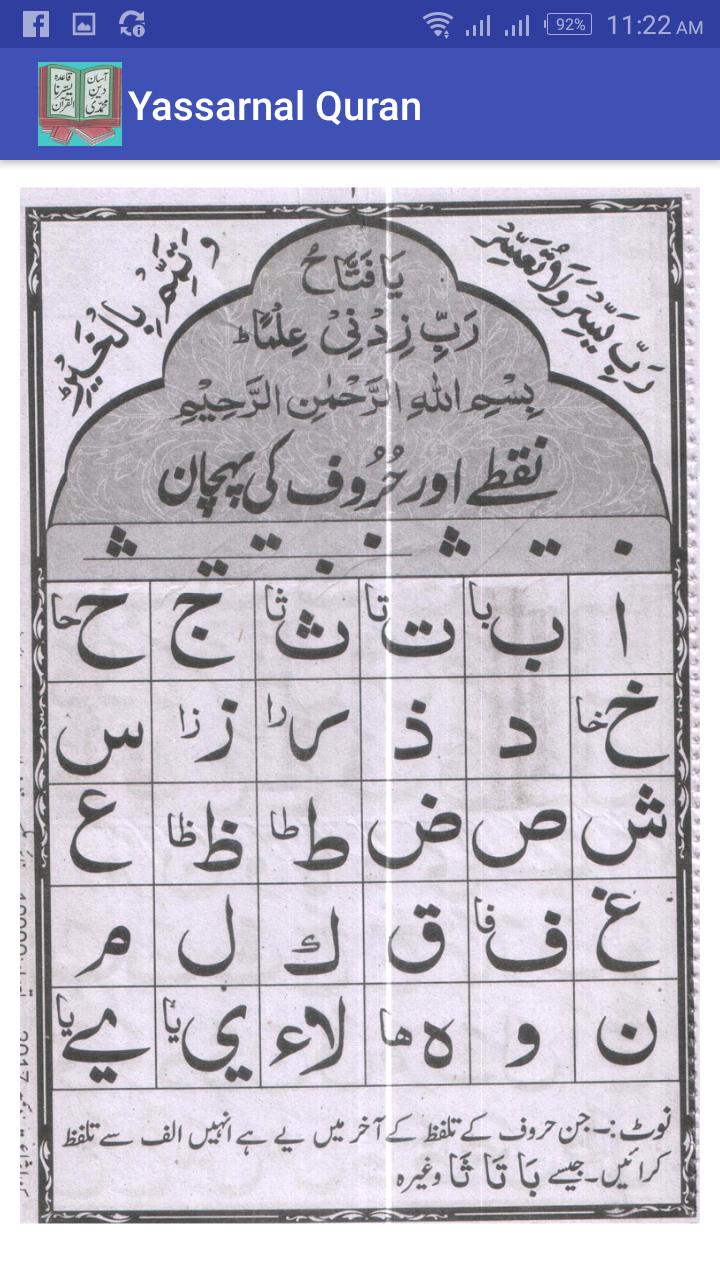 92% 11:22 AM
قاعده يسرنا القرآن
آسان دین محمدی
Yassarnal Quran
۱
رَبِّ يَسِّرْ وَلَا تُعَسِّرْ
وَتَمِّمْ بِالْخَيْرِ
يَا فَتَّاحُ
رَبِّ زِدْنِيْ عِلْمًا ط
بِسْمِ اللهِ الرَّحْمٰنِ الرَّحِيْمِ
نقطے اور حُرُوف کی پہچان
ا ب با ت تا ث ثا ج ح حا
خ خا د ذ ر را ز زا س
ش ص ض ط طا ظ ظا ع
غ ف فا ق ك ل م
ن و ه ها لا ء ي يا ے يا
نوٹ :- جن حروف کے تلفظ کے آخر میں یے ہے انہیں الف سے تلفظ
کرائیں۔ جیسے بَا تَا ثَا وغیرہ